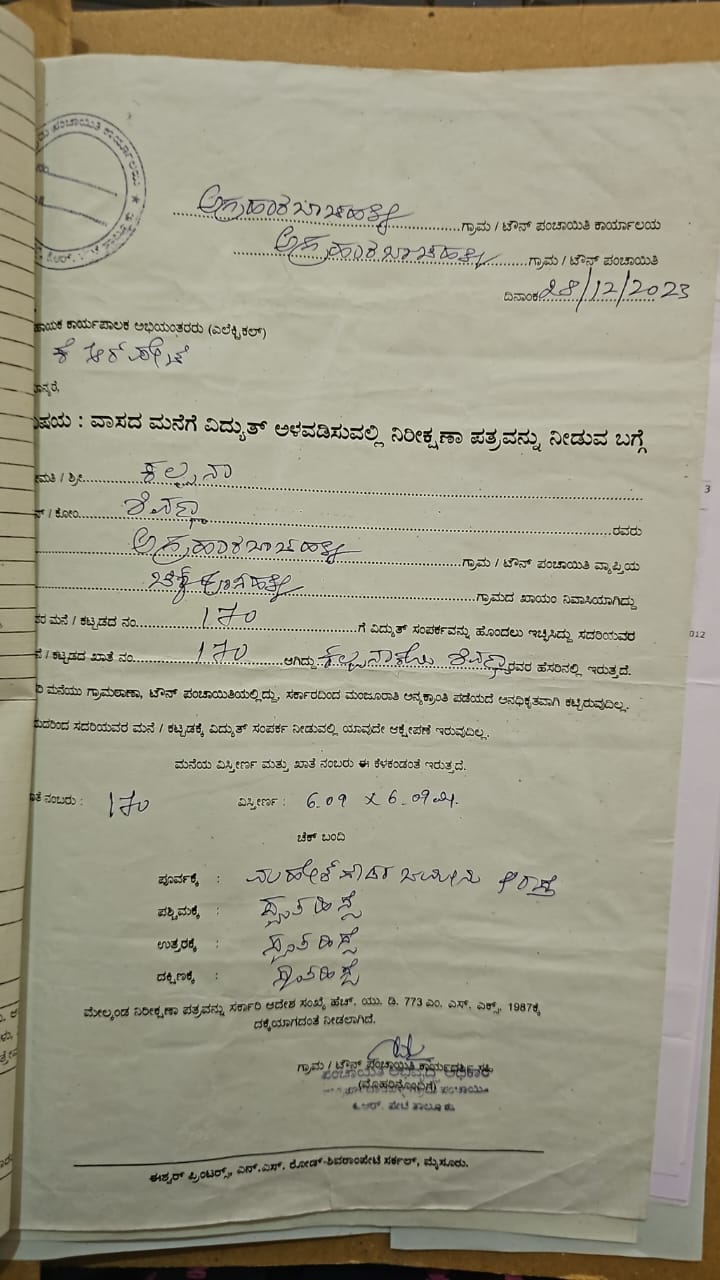 ಪಂಚಾಯಿತಿ ಕಾರ್ಯಾಲಯ
ಅಗ್ರಹಾರಬಾಚಹಳ್ಳಿ ಗ್ರಾಮ / ಟೌನ್ ಪಂಚಾಯಿತಿ ಕಾರ್ಯಾಲಯ
ಅಗ್ರಹಾರಬಾಚಹಳ್ಳಿ ಗ್ರಾಮ / ಟೌನ್ ಪಂಚಾಯಿತಿ
ದಿನಾಂಕ 28/12/2023
ಹಾಯಕ ಕಾರ್ಯಪಾಲಕ ಅಭಿಯಂತರರು (ಎಲೆಕ್ಟ್ರಿಕಲ್)
ಕೆ ಆರ್ ಪೇಟೆ
ಾನ್ಯರೆ,
ಿಷಯ : ವಾಸದ ಮನೆಗೆ ವಿದ್ಯುತ್ ಅಳವಡಿಸುವಲ್ಲಿ ನಿರೀಕ್ಷಣಾ ಪತ್ರವನ್ನು ನೀಡುವ ಬಗ್ಗೆ
ೀಮತಿ / ಶ್ರೀ ಕಲ್ಪನಾ
/ ಕೋಂ ಶಿವಣ್ಣ ರವರು
ಅಗ್ರಹಾರಬಾಚಹಳ್ಳಿ ಗ್ರಾಮ / ಟೌನ್ ಪಂಚಾಯಿತಿ ವ್ಯಾಪ್ತಿಯ
ಗ್ರಾಮದ ಖಾಯಂ ನಿವಾಸಿಯಾಗಿದ್ದು
ರ ಮನೆ / ಕಟ್ಟಡದ ನಂ. 170 ಗೆ ವಿದ್ಯುತ್ ಸಂಪರ್ಕವನ್ನು ಹೊಂದಲು ಇಚ್ಛಿಸಿದ್ದು ಸದರಿಯವರ
/ ಕಟ್ಟಡದ ಖಾತೆ ನಂ. 170 ಆಗಿದ್ದು ಕಲ್ಪನಾ ಕೋಂ ಶಿವಣ್ಣ ರವರ ಹೆಸರಿನಲ್ಲಿ ಇರುತ್ತದೆ.
ರಿ ಮನೆಯು ಗ್ರಾಮಠಾಣಾ, ಟೌನ್ ಪಂಚಾಯಿತಿಯಲ್ಲಿದ್ದು, ಸರ್ಕಾರದಿಂದ ಮಂಜೂರಾತಿ ಅನ್ಯಕ್ರಾಂತಿ ಪಡೆಯದೆ ಅನಧಿಕೃತವಾಗಿ ಕಟ್ಟಿರುವುದಿಲ್ಲ.
ುದರಿಂದ ಸದರಿಯವರ ಮನೆ / ಕಟ್ಟಡಕ್ಕೆ ವಿದ್ಯುತ್ ಸಂಪರ್ಕ ನೀಡುವಲ್ಲಿ ಯಾವುದೇ ಆಕ್ಷೇಪಣೆ ಇರುವುದಿಲ್ಲ.
ಮನೆಯ ವಿಸ್ತೀರ್ಣ ಮತ್ತು ಖಾತೆ ನಂಬರು ಈ ಕೆಳಕಂಡಂತೆ ಇರುತ್ತದೆ.
ತೆ ನಂಬರು : 170 ವಿಸ್ತೀರ್ಣ : 6.09 x 6.09 ಮೀ.
ಚೆಕ್ ಬಂದಿ
ಪೂರ್ವಕ್ಕೆ :
ಪಶ್ಚಿಮಕ್ಕೆ : ಸ್ವತಹಿಸ್ಸೆ
ಉತ್ತರಕ್ಕೆ : ಸ್ವತಹಿಸ್ಸೆ
ದಕ್ಷಿಣಕ್ಕೆ : ಸ್ವತಹಿಸ್ಸೆ
ಮೇಲ್ಕಂಡ ನಿರೀಕ್ಷಣಾ ಪತ್ರವನ್ನು ಸರ್ಕಾರಿ ಆದೇಶ ಸಂಖ್ಯೆ ಹೆಚ್. ಯು. ಡಿ. 773 ಎಂ. ಎಸ್. ಎಕ್ಸ್. 1987ಕ್ಕೆ
ದಕ್ಕೆಯಾಗದಂತೆ ನೀಡಲಾಗಿದೆ.
ಗ್ರಾಮ / ಟೌನ್ ಪಂಚಾಯಿತಿ ಕಾರ್ಯದರ್ಶಿ ಸಹಿ
ಪಂಚಾಯಿತಿ ಅಭಿವೃದ್ಧಿ ಅಧಿಕಾರಿ
(ಮೊಹರಿನೊಂದಿಗೆ)
ಕೆ.ಆರ್. ಪೇಟೆ ತಾಲ್ಲೂಕು.
ಈಶ್ವರ್ ಪ್ರಿಂಟರ್ಸ್, ಎನ್.ಎಸ್. ರೋಡ್-ಶಿವರಾಂಪೇಟೆ ಸರ್ಕಲ್, ಮೈಸೂರು.